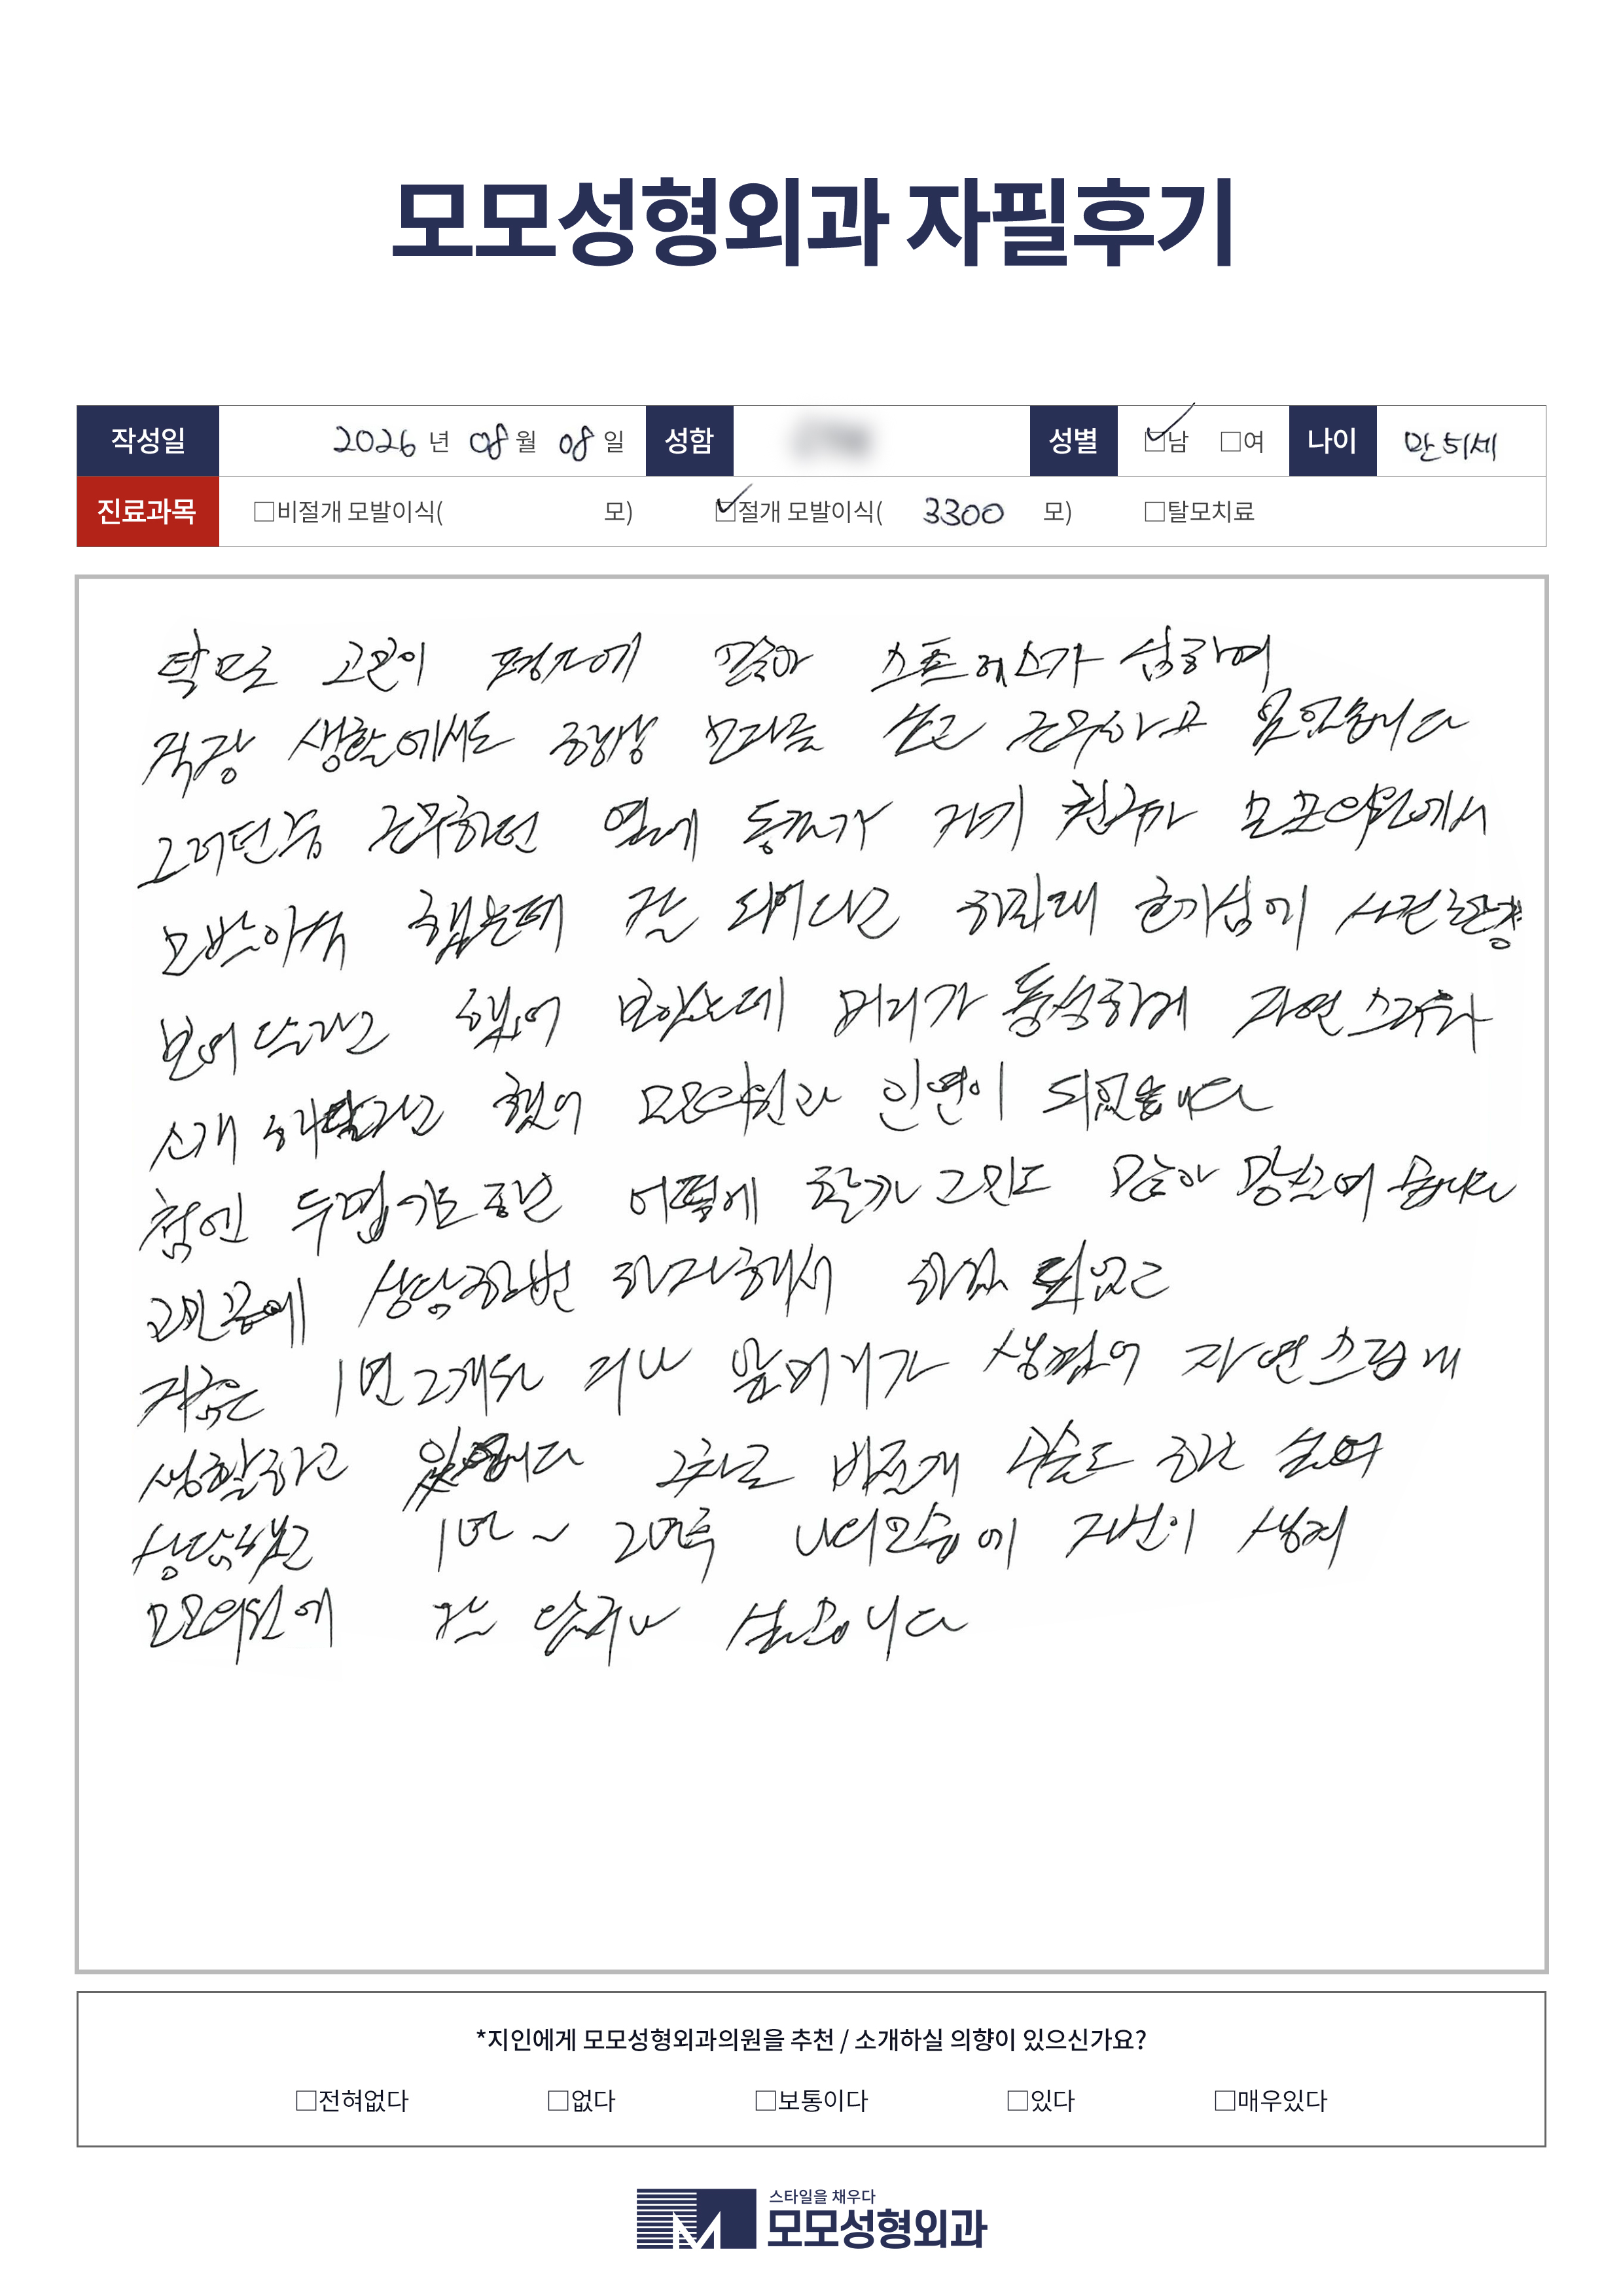 모모성형외과 자필후기
작성일 2026 년 08 월 08 일 성함 성별 ☑남 □여 나이 만 51세
진료과목 □비절개 모발이식( 모) ☑절개 모발이식( 3300 모) □탈모치료
탈모로 고민이 평소에 많아 스트레스가 심하여
직장 생활에서도 항상 모자를 쓰고 근무하고 있었습니다
그러던중 근무하던 옆에 동료가 자기 친구가 모모의원에서
모발이식 했는데 잘 되었다고 하길래 호기심에 사진한장
보여 달라고 했어 보았는데 머리가 풍성하게 자연스러워
소개 해달라고 했어 모모의원과 인연이 되었습니다
첨엔 두렵기도 하고 어떻게 할가 고민도 많아 망설여 습니다
고민끝에 상담한번 하자해서 하게 되었고
지금은 1년 2개월 지나 앞머리가 생겼어 자연스럽게
생활하고 있습니다 2차로 비절개 수술도 하고 싶어
상담했고 1년 ~ 2년후 내모습에 자신이 생겨
모모의원에 잘 싶습니다
*지인에게 모모성형외과의원을 추천 / 소개하실 의향이 있으신가요?
□전혀없다 □없다 □보통이다 □있다 □매우있다
스타일을 채우다
모모성형외과